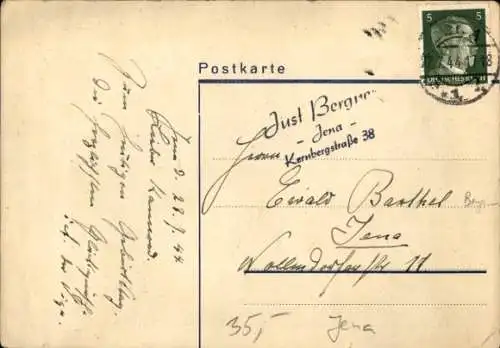 Jena d. 28.9.44
Lieber Kamerad.
Zum heutigen Geburtstag
die herzlichsten Glückwünsche
Postkarte
5 5
DEUTSCHES REICH
Just Bergner
- Jena -
Kernbergstraße 38
Herrn
Ewald Barthel
Jena
Wollmdorferstr 11
35,-
Jena